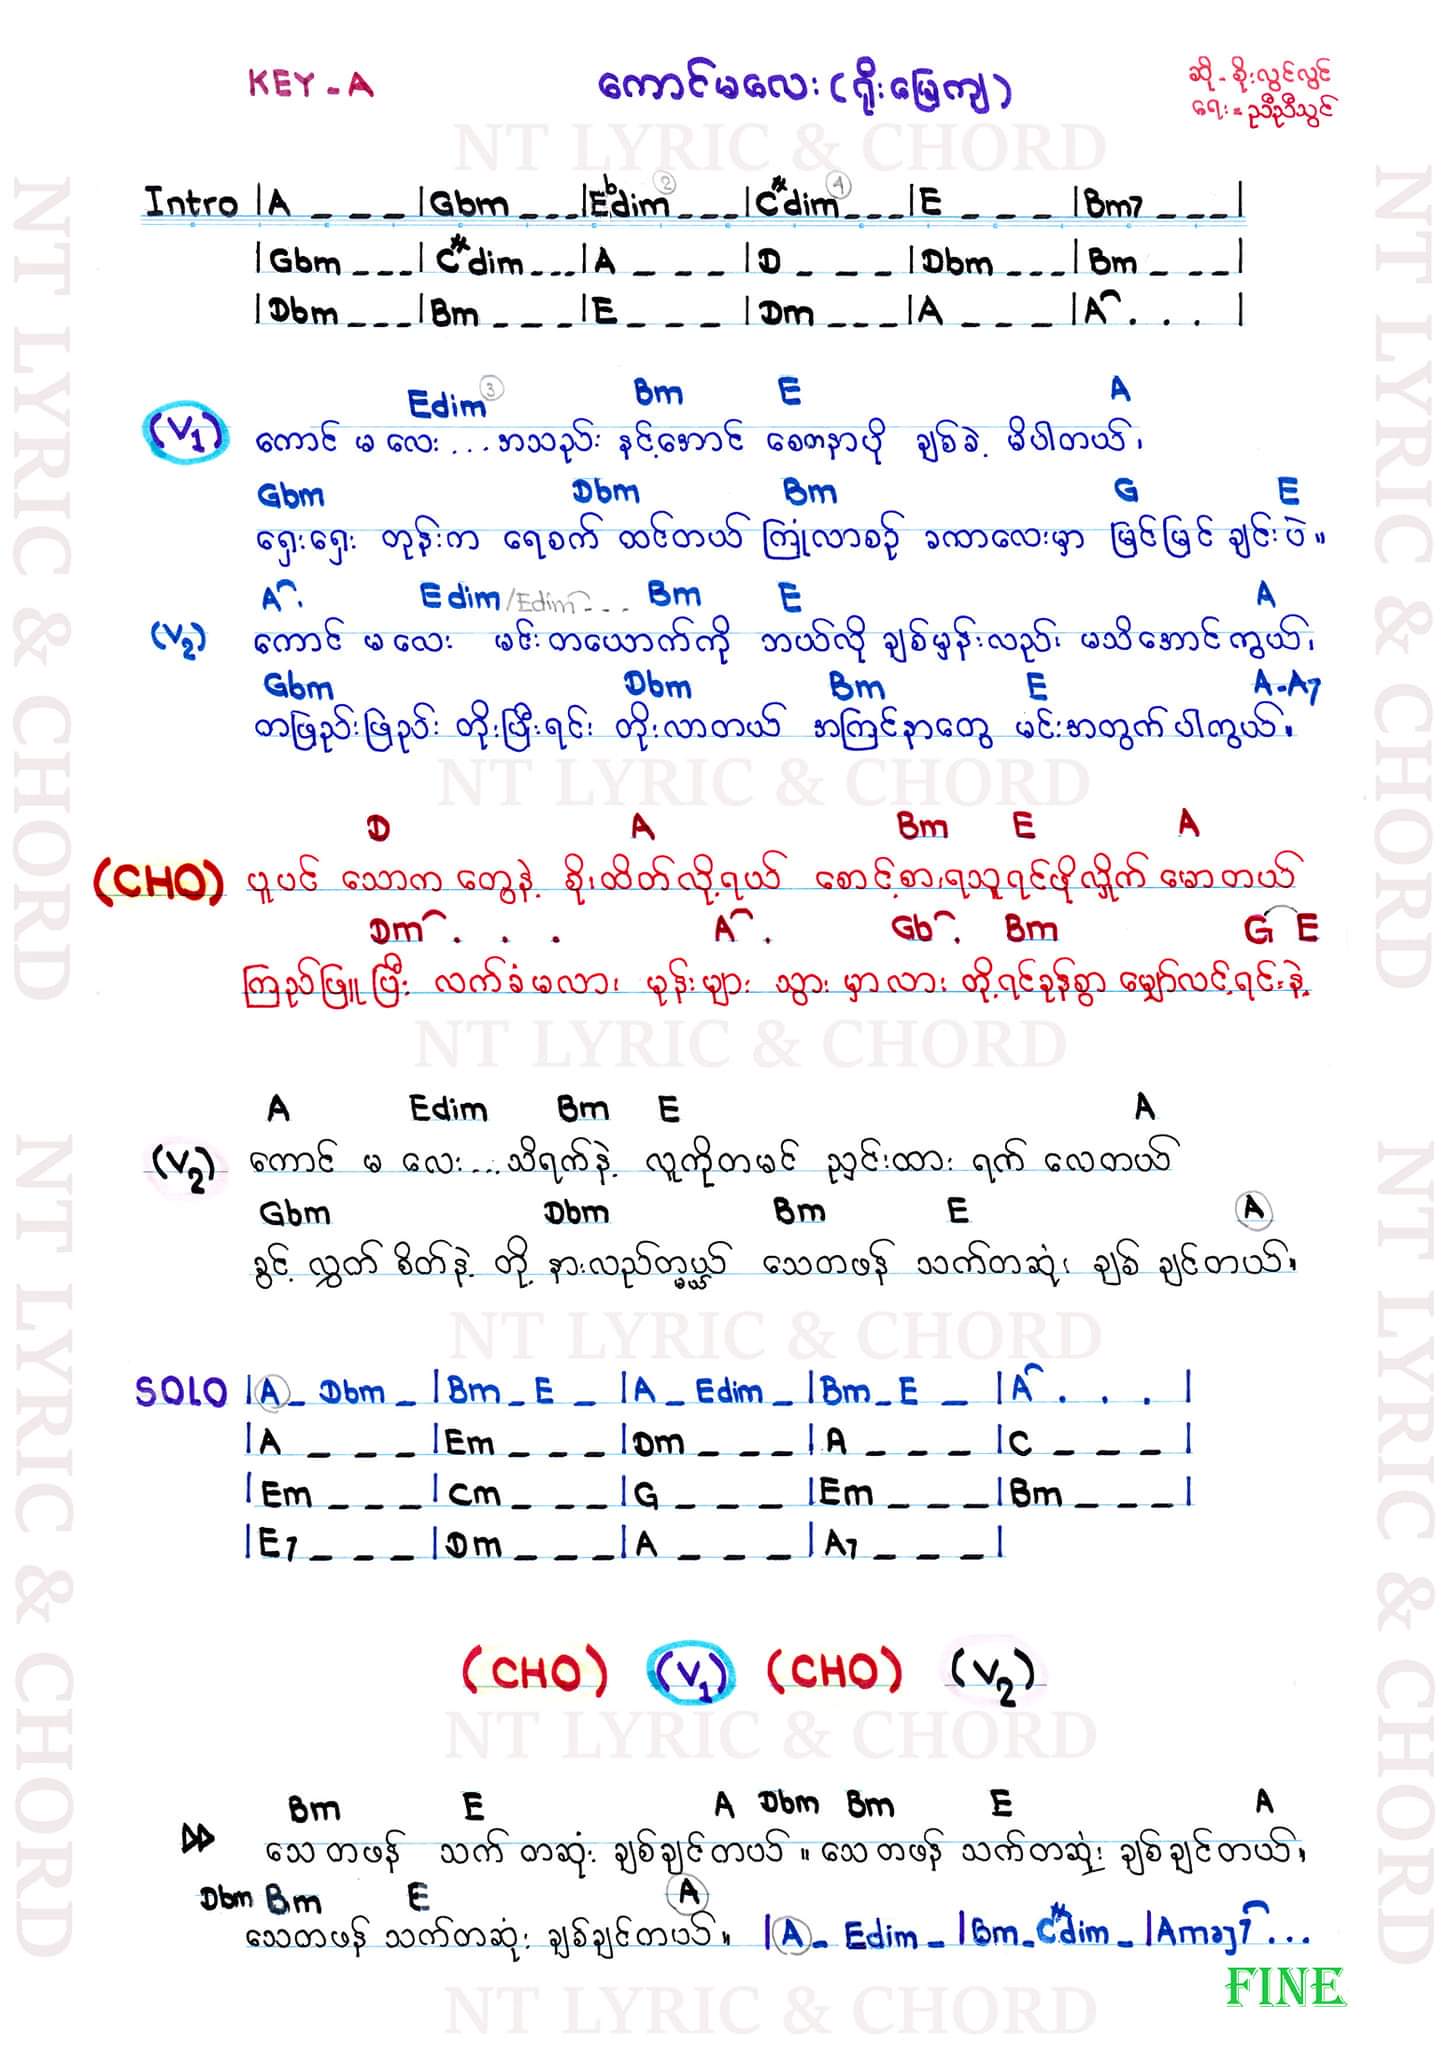 KEY - A
ကောင်မလေး (ရိုးမြေကျ)
ဆို - စိုးလွင်လွင်
ရေး = ညီညီသွင်
NT LYRIC & CHORD
Intro |A _ _ _ |Gbm _ _ _ |Ebdim ② _ _ _ |C#dim ④ _ _ _ |E _ _ _ |Bm7 _ _ _ |
|Gbm _ _ _ |C#dim _ _ _ |A _ _ _ |D _ _ _ |Dbm _ _ _ |Bm _ _ _ |
|Dbm _ _ _ |Bm _ _ _ |E _ _ _ |Dm _ _ _ |A _ _ _ |A⌒ . . . |
Edim ③ Bm E A
(V1) ကောင် မ လေး ... အသည်း နင့်အောင် စေတနာပို ချစ်ခဲ့ မိပါတယ်၊
Gbm Dbm Bm G E
ရှေးရှေး တုန်းက ရေစက် ထင်တယ် ကြုံလာစဉ် ခဏလေးမှာ မြင်မြင် ချင်းပဲ။
A⌒. Edim /Edim⌒... Bm E A
(V2) ကောင် မ လေး မင်းတယောက်ကို ဘယ်လို ချစ်မှန်းလည်း မသိအောင်ကွယ်၊
Gbm Dbm Bm E A-A7
တဖြည်းဖြည်း တိုးပြီးရင်း တိုးလာတယ် အကြင်နာတွေ မင်းအတွက်ပါကွယ်။
NT LYRIC & CHORD
D A Bm E A
(CHO) ပူပင် သောက တွေနဲ့ စိုးထိတ်လို့ရယ် စောင့်စားရသူရင်ဖိုလှိုက် မောတယ်
Dm⌒ . . . A⌒. Gb⌒. Bm G E
ကြည်ဖြူ ပြီး လက်ခံမလား မုန်းများ သွား မှာလား တို့ရင်ခုန်စွာ မျှော်လင့်ရင်းနဲ့
NT LYRIC & CHORD
A Edim Bm E A
(V2) ကောင် မ လေး ... သိရက်နဲ့ လူကိုတမင် ညှင်းထား ရက် လေတယ်
Gbm Dbm Bm E A
ခွင့် လွှတ် စိတ်နဲ့ တို့ နားလည်တ္မယ် သေတဖန် သက်တဆုံး ချစ် ချင်တယ်။
NT LYRIC & CHORD
SOLO |A _ Dbm _ |Bm _ E _ |A _ Edim _ |Bm _ E _ |A⌒ . . . |
|A _ _ _ |Em _ _ _ |Dm _ _ _ |A _ _ _ |C _ _ _ |
|Em _ _ _ |Cm _ _ _ |G _ _ _ |Em _ _ _ |Bm _ _ _ |
|E7 _ _ _ |Dm _ _ _ |A _ _ _ |A7 _ _ _ |
(CHO) (V1) (CHO) (V2)
NT LYRIC & CHORD
Bm E A Dbm Bm E A
သေတဖန် သက် တဆုံး ချစ်ချင်တယ်။ သေတဖန် သက်တဆုံး ချစ်ချင်တယ်၊
Dbm Bm E A
သေတဖန် သက်တဆုံး ချစ်ချင်တယ်။ |A _ Edim _ |Bm _ C#dim _ |Amaj7⌒...
FINE
NT LYRIC & CHORD
NT LYRIC & CHORD
NT LYRIC & CHORD
NT LYRIC & CHORD
NT LYRIC & CHORD